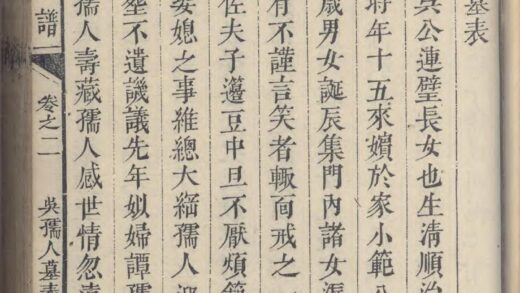 墓表
吳公連璧長女也生清順治
年十五來嬪於家小範
歲男女誕辰集門內諸女
有不謹言笑者輙面戒之
佐夫子籩豆中旦不厭煩
媳之事維總大綱孺人
塋不遺譏議先年姒婦譚孺
孺人壽藏孺人感世情忽
譜 卷之二 吳孺人墓表